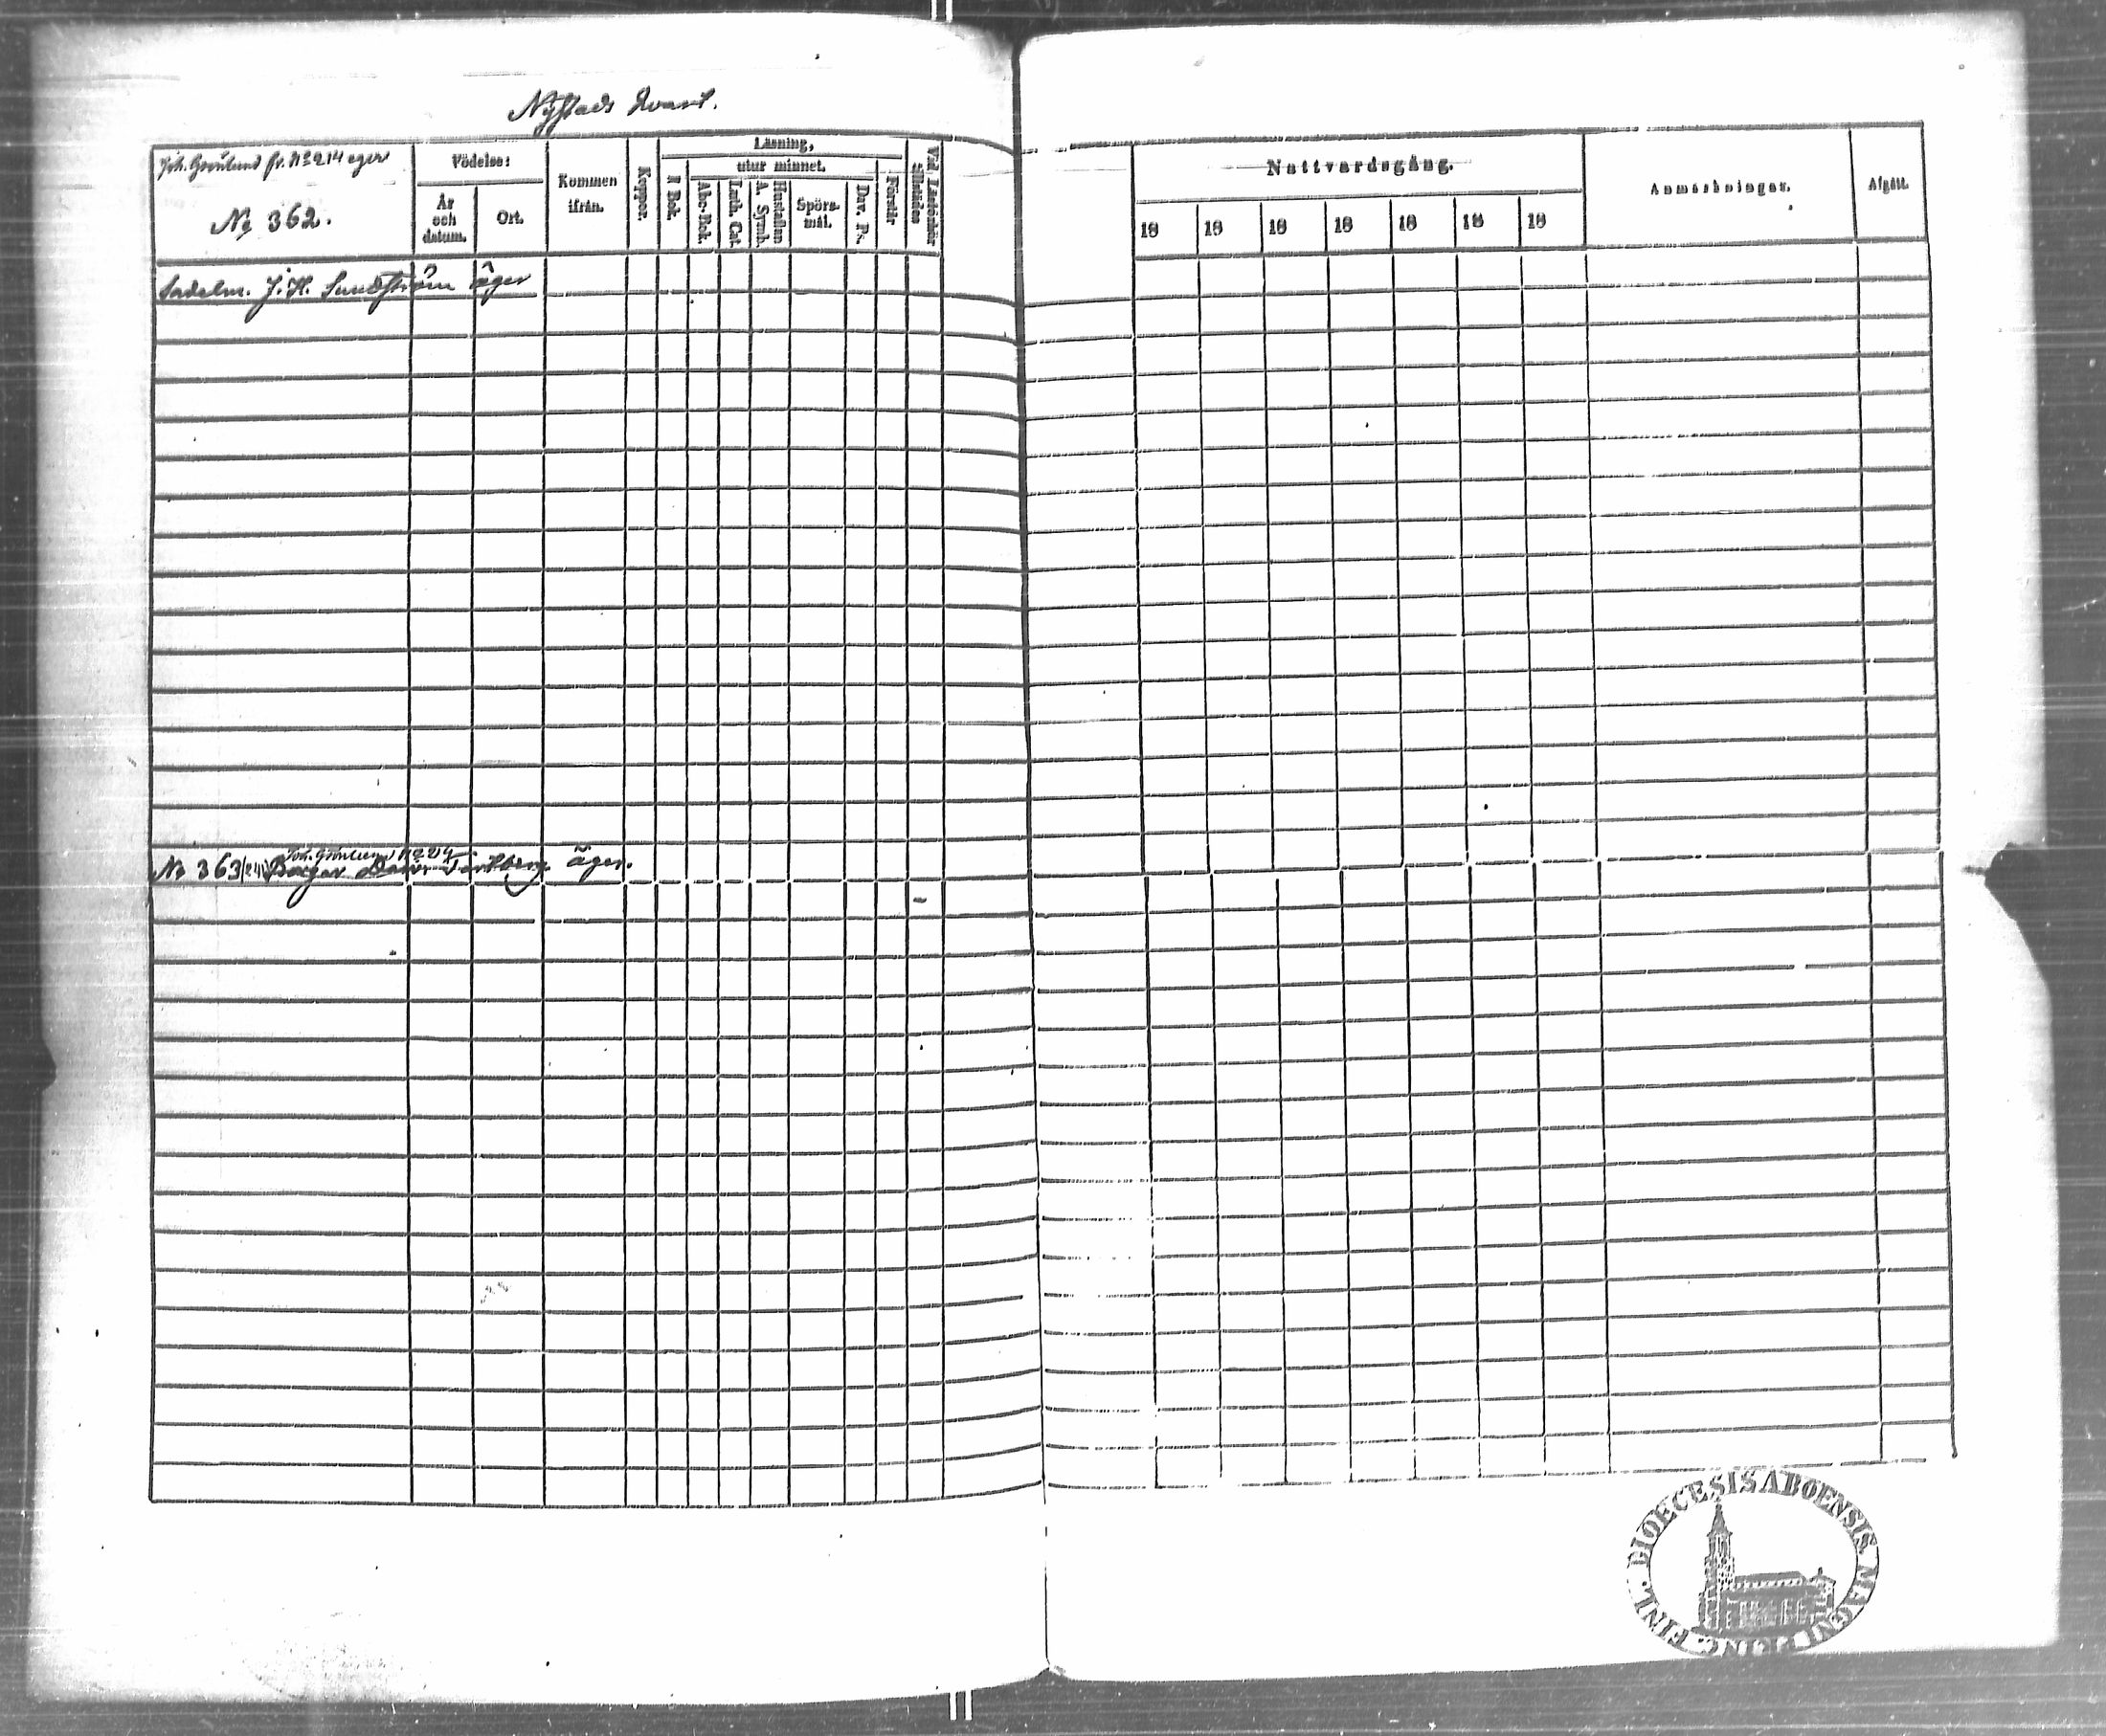 Nystads Kvart.
Joh. Grönlund fr. No 214 eger
No 362.
Födelse:
År och datum.
Ort.
Kommen ifrån.
Koppor.
Läsning,
utur minnet.
I Bok.
Abc-Bok.
Luth. Cat.
Hustaflan A. Symb.
Spörsmål.
Dav. Ps.
Förstår
Vid Läseförhör tillstädes
Nattvardsgång.
18 18 18 18 18 18 18
Anmärkningar.
Afgått.
Sadelm. J. H. Sundström äger
Joh. Grönlund No 214
No 363 Borgar äger.
FINL. DIOECESIS ABOENSIS. MAGNI PRINC.